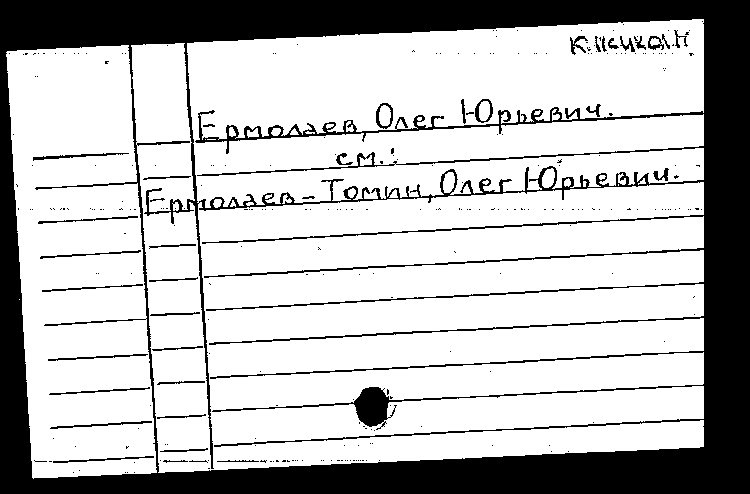 К.психол.н.
Ермолаев, Олег Юрьевич.
см.:
Ермолаев-Томин, Олег Юрьевич.